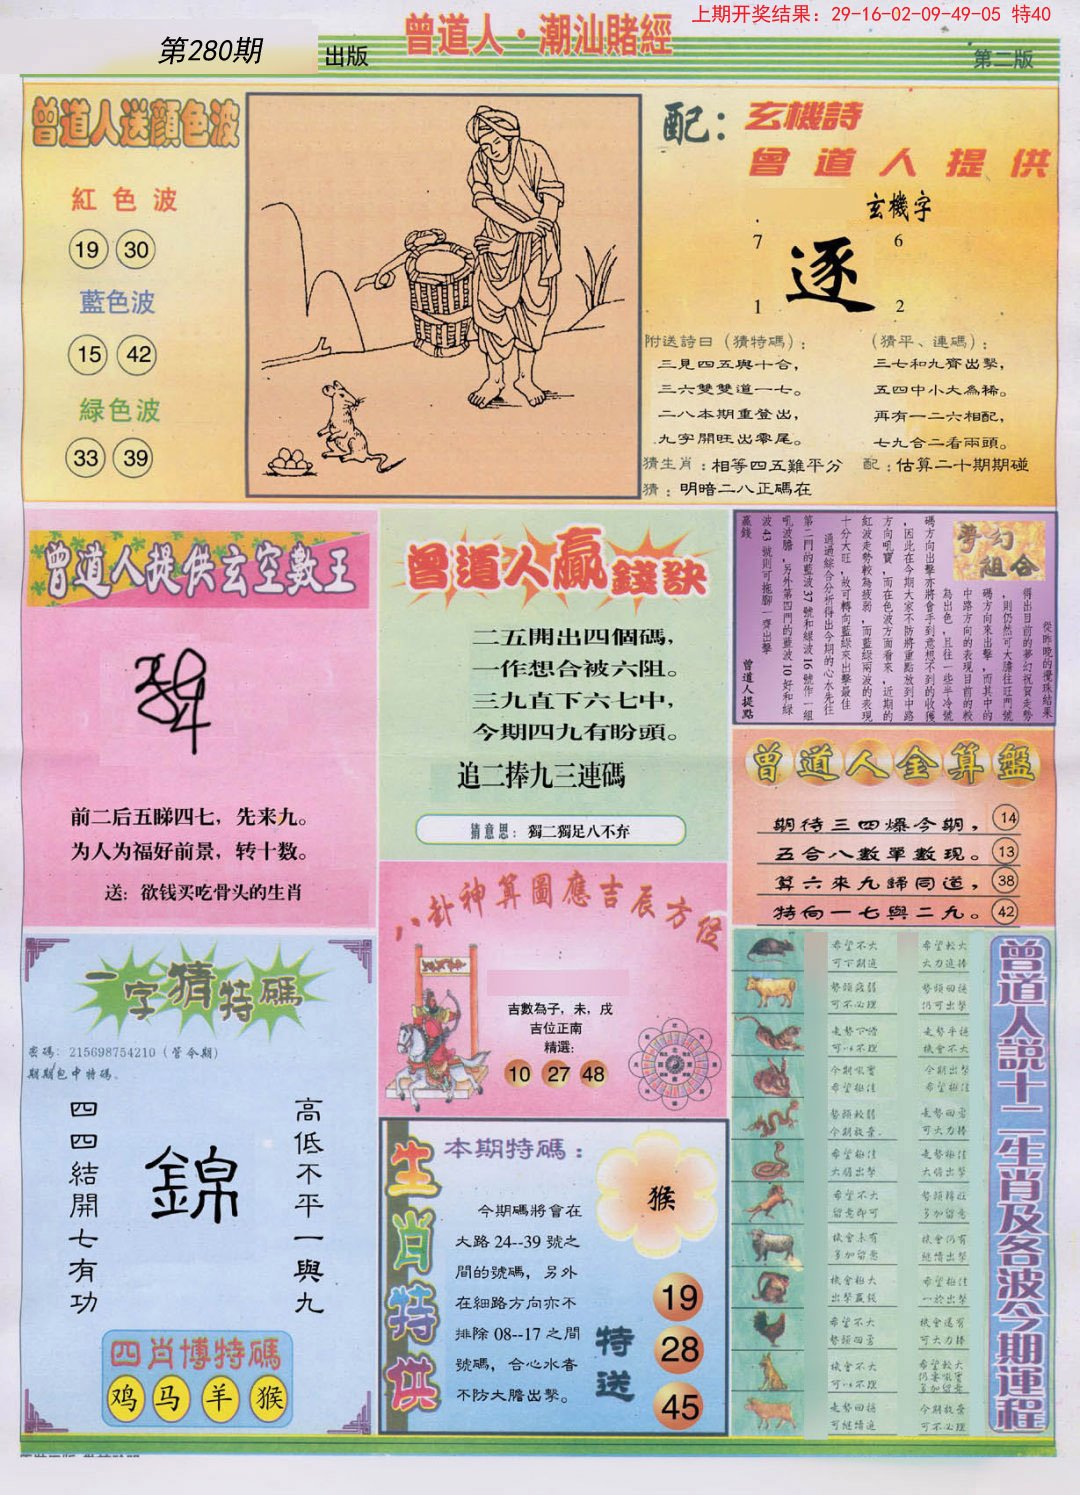 上期开奖结果：29-16-02-09-49-05 特40
第280期
出版
曾道人·潮汕賭經
第二版
曾道人送顏色波
紅色波
19 30
藍色波
15 42
緑色波
33 39
配：玄機詩
曾道人提供
玄機字
7 6
逐
1 2
附送詩曰（猜特碼）：
三見四五與十合，
三六雙雙道一七。
二八本期重登出，
九字開旺出零尾。
（猜平、連碼）：
三七和九齊出擊，
五四中小大為稀。
再有一二六相配，
七九合二看兩頭。
猜生肖：相等四五難平分
配：估算二十期期碰
猜：明暗二八正碼在
曾道人提供玄空數王
前二后五睇四七，先来九。
为人为福好前景，转十数。
送：欲钱买吃骨头的生肖
曾道人贏錢訣
二五開出四個碼，
一作想合被六阻。
三九直下六七中，
今期四九有盼頭。
追二捧九三連碼
猜意思：獨二獨足八不弃
夢幻組合
從昨晚的攪珠結果
得出目前的夢幻祝賀走勢
，則仍然可大膽往旺門號
碼方向來出擊，而其中的
中路方向的表現目前的較
為出色，且往一些半冷號
碼方向出擊亦將會手到意想不到的收獲
，因此在今期大家不防將重點放到中路
方向吼寶，而在色波方面看來，近期的
紅波走勢較為疲弱，而藍綠兩波的表現
十分大旺，故可轉向藍綠來出擊最佳
通過綜合分析得出今期的心水先往
第二門的藍波37號和綠波16號作一組
吼波膽，另外第四門的藍波10好和綠
波43號則可拖腳一齊出擊
贏錢
曾道人提點
曾道人金算盤
期待三四爆今期， 14
五合八數單數現。 13
算六來九歸同道， 38
特向一七與二九。 42
八卦神算圖應吉辰方位
吉數為子，未，戌
吉位正南
精選：
10 27 48
一字猜特碼
密碼：215698754210（管令期）
期期包中特碼、
高低不平一與九
錦
四四結開七有功
四肖博特碼
鸡 马 羊 猴
生肖特供
本期特碼：
猴
今期碼將會在
大路 24--39 號之
間的號碼，另外
在細路方向亦不
排除 08--17 之間
號碼，合心水者
不防大膽出擊。
特送
19
28
45
曾道人說十二生肖及各波今期運程
希望不大
希望較大
大力追捧
可不必理
仍可出擊
機會不大
今期出擊
希望極佳
可大力捧
希望極佳
大膽出擊
希望不大
留意即可
多加留意
機會未有
多加留意
機會仍有
繼續出擊
機會極大
出擊贏錢
希望極佳
希望不大
機會還有
可大力捧
機會不大
希望較大
多加留意
走勢回穩
可繼續追
可不必理